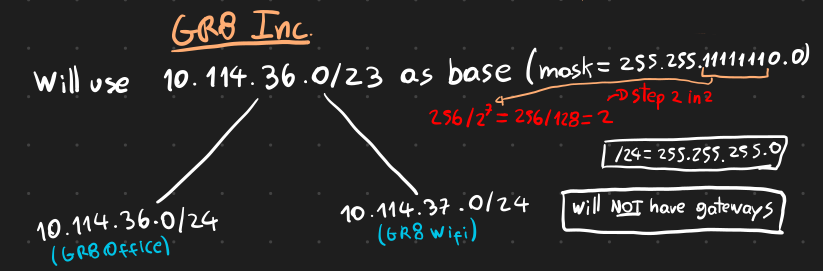 GR8 Inc.
Will use 10.114.36.0/23 as base (mask = 255.255.11111110.0)
→ Step 2 in 2
256/2⁷ = 256/128 = 2
/24 = 255.255.255.0
10.114.36.0/24
(GR8 Office)
10.114.37.0/24
(GR8 Wifi)
Will NOT have gateways